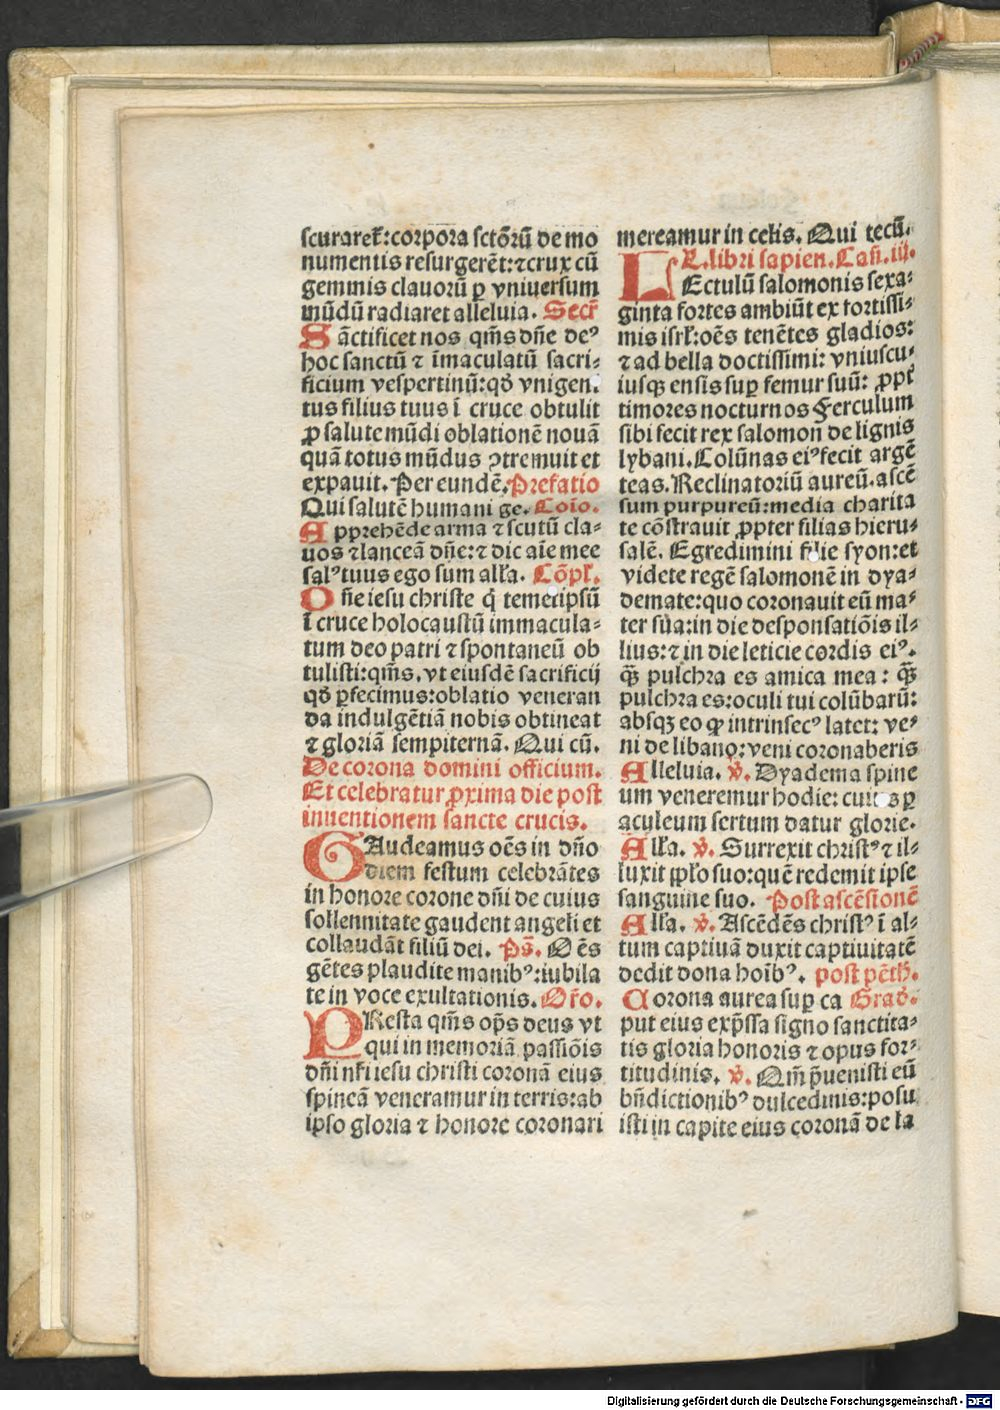 scuraret̃:corpora sctõrũ de mo
numentis resurgerẽt:⁊crux cũ
gemmis clauorũ ꝑ vniuersum
mũdũ radiaret alleluia. Secr̃
Sãctificet nos qm̃s dñe deꝰ
hoc sanctũ ⁊ ĩmaculatũ sacri-
ficium vespertinũ:qð vnigeni
tus filius tuus ĩ cruce obtulit
ꝓ salute mũdi oblationẽ nouã
quã totus mũdus ꝯtremuit et
expauit. Per eundẽ. Prefatio
Qui salutẽ humani ge. Cõio.
Apprehẽde arma ⁊ scutũ cla-
uos ⁊lanceã dñe:⁊ dic aĩe mee
salꝰtuus ego sum all'a. Cõpl'.
Dñe iesu christe q̃ temetipsũ
ĩ cruce holocaustũ immacula-
tum deo patri ⁊ spontaneũ ob
tulisti:qm̃s.vt eiusdẽ sacrificij
qð ꝑfecimus:oblatio veneran
da indulgẽtiã nobis obtineat
⁊ gloriã sempiternã. Qui cũ.
De corona domini officium.
Et celebratur ꝓxima die post
inuentionem sancte crucis.
GAudeamus oẽs in dño
diem festum celebrãtes
in honore corone dñi de cuius
sollennitate gaudent angeli et
collaudãt filiũ dei. Ps̃. Oẽs
gẽtes plaudite manibꝰ:iubila
te in voce exultationis. Or̃o.
PResta qm̃s op̃s deus vt
qui in memoriã passiõis
dñi nr̃i iesu christi coronã eius
spineã veneramur in terris:ab
ipso gloria ⁊ honore coronari
mereamur in celis. Qui tecũ.
L'.libri sapien. Cañ.iij.
LEctulũ salomonis sexa-
ginta fortes ambiũt ex fortissi-
mis isrl':oẽs tenẽtes gladios:
⁊ ad bella doctissimi: vniuscu-
iusqꝫ ensis suꝑ femur suũ: ꝓpt̃
timores nocturnos Ferculum
sibi fecit rex salomon de lignis
lybani. Colũnas eiꝰfecit argẽ
teas. Reclinatoriũ aureũ.ascẽ
sum purpureũ:media charita
te cõstrauit ꝓpter filias hieru-
salẽ. Egredimini filie syon:et
videte regẽ salomonẽ in dya-
demate:quo coronauit eũ ma-
ter sua:in die desponsatiõis il-
lius:⁊ in die leticie cordis eiꝰ.
q̃ꝫ pulchra es amica mea: q̃ꝫ
pulchra es:oculi tui colũbarũ:
absqꝫ eo qꝫ intrinsecꝰ latet: ve-
ni de libano:veni coronaberis
Alleluia. ℣. Dyadema spine
um veneremur hodie: cuius ꝑ
aculeum sertum datur glorie.
All'a. ℣. Surrexit christꝰ⁊ il-
luxit ꝓplo suo:quẽ redemit ipse
sanguine suo. Post ascẽsionẽ
All'a. ℣. Ascẽdẽs christꝰ ĩ al-
tum captiuã duxit captiuitatẽ
dedit dona hoĩbꝰ. post pẽth.
Corona aurea suꝑ ca Grað.
put eius exp̃ssa signo sanctita-
tis gloria honoris ⁊ opus for-
titudinis. ℣. Qm̃ p̃uenisti eũ
bñdictionibꝰ dulcedinis:posu
isti in capite eius coronã de la
Digitalisierung gefördert durch die Deutsche Forschungsgemeinschaft - DFG